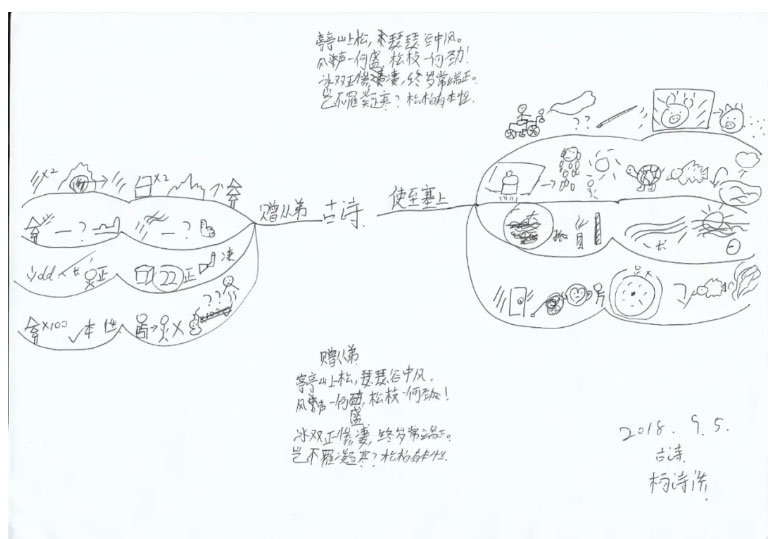 亭亭山上松,瑟瑟谷中风。
风声一何盛,松枝一何劲!
冰双正惨凄,终岁常端正。
岂不罹凝寒?松柏有本性.
??
x2
x2
赠从弟
古诗
使至塞上
一?
一?
长
正
22
正
??
x100
本性
赠从弟
亭亭山上松,瑟瑟谷中风。
风声一何盛,松枝一何劲!
冰双正惨凄,终岁常端正。
岂不罹凝寒?松柏有本性.
2018.9.5.
古诗